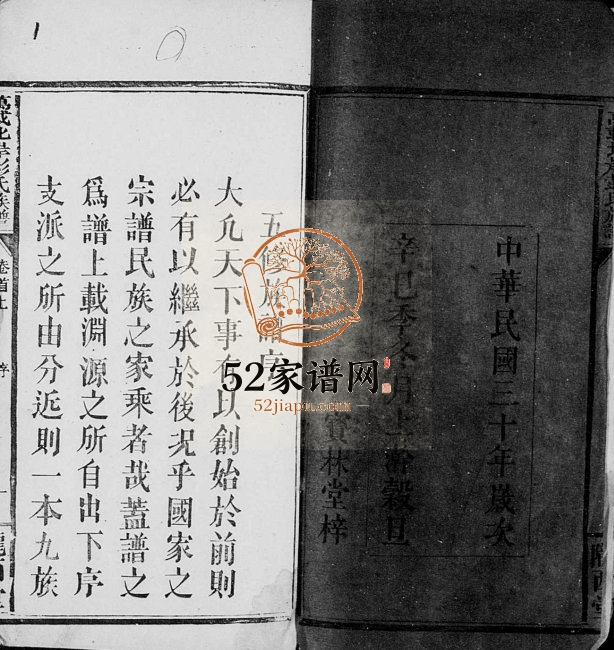 中華民國三十年歲次
辛巳季冬月上澣穀旦
寶林堂梓
隴西堂
1
五修族譜序
大凡天下事有以創始於前則
必有以繼承於後況乎國家之
宗譜民族之家乘者哉蓋譜之
爲譜上載淵源之所自出下序
支派之所由分近則一本九族
彭氏族譜
卷首上
序
一
52家谱网
52jiapu.com